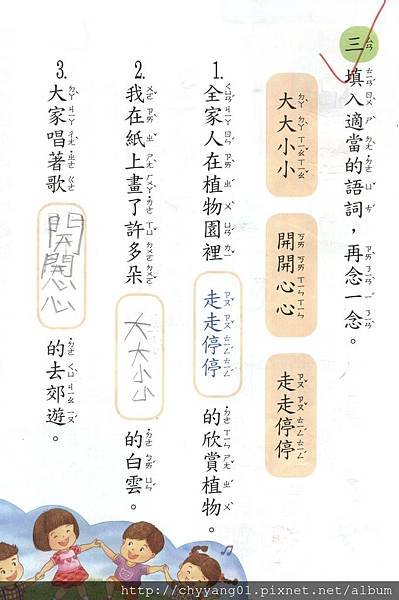 三 填入適當的語詞，再念一念。
大大小小
開開心心
走走停停
1. 全家人在植物園裡 走走停停 的欣賞植物。
2. 我在紙上畫了許多朵 大大小小 的白雲。
3. 大家唱著歌 開開心心 的去郊遊。
http://chyyang01.pixnet.net/album